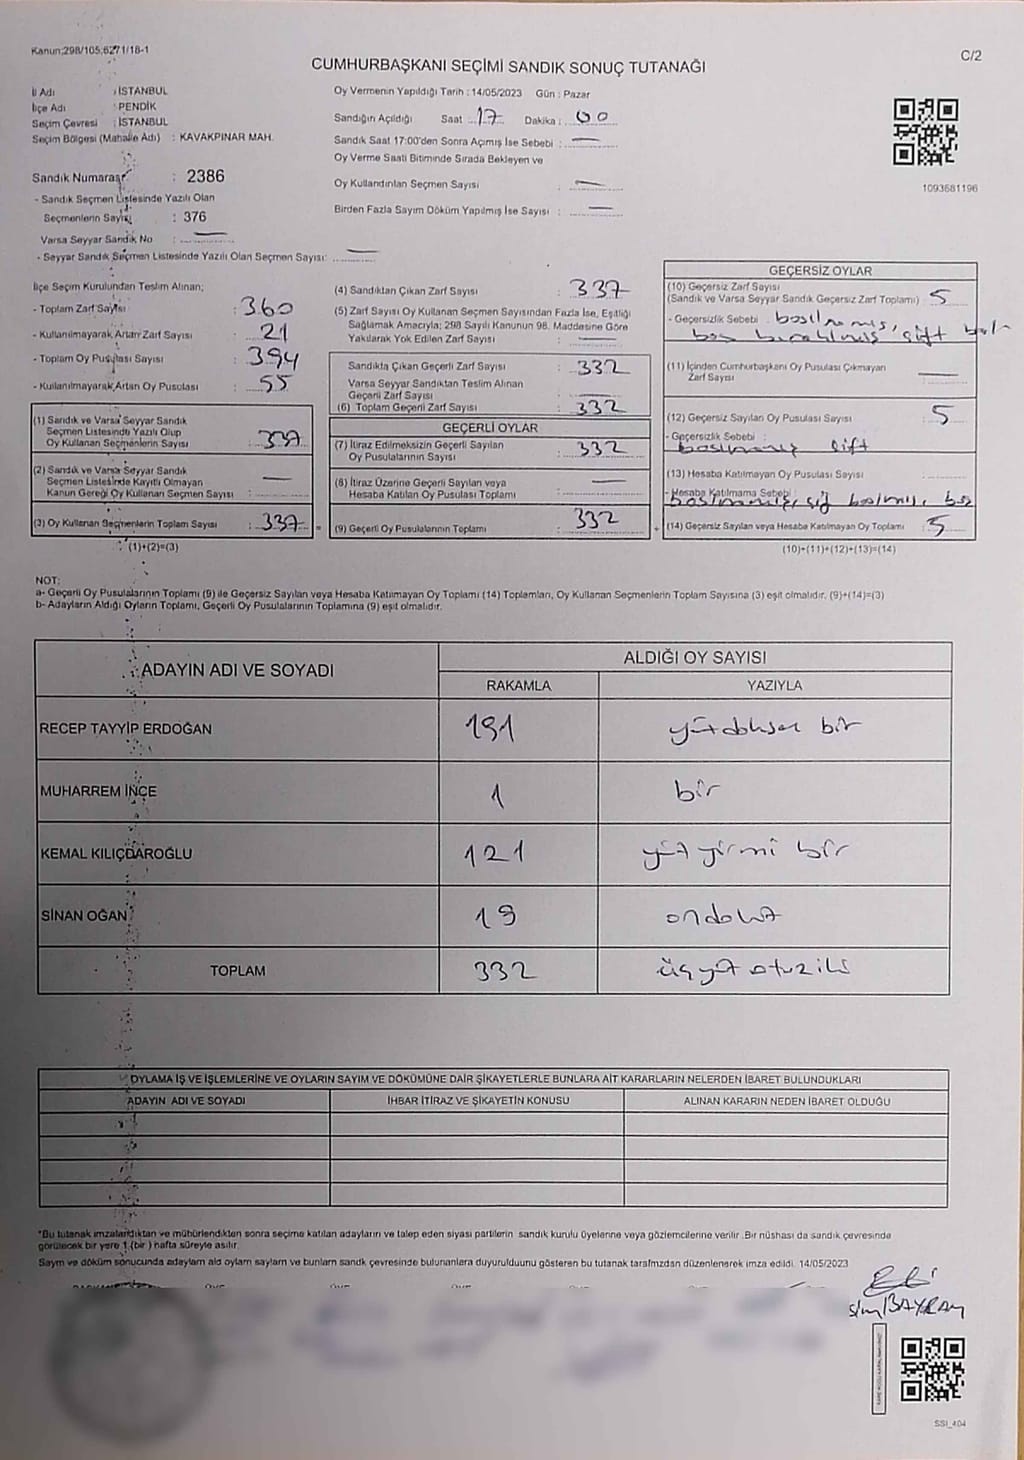 Kanun;298/105;6271/18-1
C/2
CUMHURBAŞKANI SEÇİMİ SANDIK SONUÇ TUTANAĞI
İl Adı : İSTANBUL
İlçe Adı : PENDİK
Seçim Çevresi : İSTANBUL
Seçim Bölgesi (Mahalle Adı) : KAVAKPINAR MAH.
Sandık Numarası : 2386
- Sandık Seçmen Listesinde Yazılı Olan
Seçmenlerin Sayısı : 376
Varsa Seyyar Sandık No : —
- Seyyar Sandık Seçmen Listesinde Yazılı Olan Seçmen Sayısı: —
Oy Vermenin Yapıldığı Tarih : 14/05/2023 Gün : Pazar
Sandığın Açıldığı Saat 17 Dakika : 00
Sandık Saat 17:00'den Sonra Açımış İse Sebebi : —
Oy Verme Saati Bitiminde Sırada Bekleyen ve
Oy Kullandırılan Seçmen Sayısı : —
Birden Fazla Sayım Döküm Yapılmış İse Sayısı : —
1093681196
İlçe Seçim Kurulundan Teslim Alınan;
- Toplam Zarf Sayısı : 360
- Kullanılmayarak Artan Zarf Sayısı : 21
- Toplam Oy Pusulası Sayısı : 394
- Kullanılmayarak Artan Oy Pusulası : 55
(1) Sandık ve Varsa Seyyar Sandık
Seçmen Listesinde Yazılı Olup
Oy Kullanan Seçmenlerin Sayısı : 337
(2) Sandık ve Varsa Seyyar Sandık
Seçmen Listesinde Kayıtlı Olmayan
Kanun Gereği Oy Kullanan Seçmen Sayısı : —
(3) Oy Kullanan Seçmenlerin Toplam Sayısı : 337 =
(1)+(2)=(3)
(4) Sandıktan Çıkan Zarf Sayısı : 337
(5) Zarf Sayısı Oy Kullanan Seçmen Sayısından Fazla İse, Eşitliği
Sağlamak Amacıyla; 298 Sayılı Kanunun 98. Maddesine Göre
Yakılarak Yok Edilen Zarf Sayısı : —
Sandıkta Çıkan Geçerli Zarf Sayısı : 332
Varsa Seyyar Sandıktan Teslim Alınan
Geçerli Zarf Sayısı : —
(6) Toplam Geçerli Zarf Sayısı : 332
GEÇERLİ OYLAR
(7) İtiraz Edilmeksizin Geçerli Sayılan
Oy Pusulalarının Sayısı : 332
(8) İtiraz Üzerine Geçerli Sayılan veya
Hesaba Katılan Oy Pusulası Toplamı : —
(9) Geçerli Oy Pusulalarının Toplamı : 332 +
GEÇERSİZ OYLAR
(10) Geçersiz Zarf Sayısı
(Sandık ve Varsa Seyyar Sandık Geçersiz Zarf Toplamı) : 5
- Geçersizlik Sebebi :
boş bırakılmış çift
(11) İçinden Cumhurbaşkanı Oy Pusulası Çıkmayan
Zarf Sayısı : —
(12) Geçersiz Sayılan Oy Pusulası Sayısı : 5
- Geçersizlik Sebebi :
çift
(13) Hesaba Katılmayan Oy Pusulası Sayısı :
- Hesaba Katılmama Sebebi :
(14) Geçersiz Sayılan veya Hesaba Katılmayan Oy Toplamı : 5
(10)+(11)+(12)+(13)=(14)
NOT:
a- Geçerli Oy Pusulalarının Toplamı (9) ile Geçersiz Sayılan veya Hesaba Katılmayan Oy Toplamı (14) Toplamları, Oy Kullanan Seçmenlerin Toplam Sayısına (3) eşit olmalıdır. (9)+(14)=(3)
b- Adayların Aldığı Oyların Toplamı, Geçerli Oy Pusulalarının Toplamına (9) eşit olmalıdır.
ADAYIN ADI VE SOYADI ALDIĞI OY SAYISI
RAKAMLA YAZIYLA
RECEP TAYYİP ERDOĞAN 191 yüzdoksan bir
MUHARREM İNCE 1 bir
KEMAL KILIÇDAROĞLU 121 yüz yirmi bir
SİNAN OĞAN 19 ondokuz
TOPLAM 332 üçyüz otuziki
OYLAMA İŞ VE İŞLEMLERİNE VE OYLARIN SAYIM VE DÖKÜMÜNE DAİR ŞİKAYETLERLE BUNLARA AİT KARARLARIN NELERDEN İBARET BULUNDUKLARI
ADAYIN ADI VE SOYADI İHBAR İTİRAZ VE ŞİKAYETİN KONUSU ALINAN KARARIN NEDEN İBARET OLDUĞU
*Bu tutanak imzalandıktan ve mühürlendikten sonra seçime katılan adayların ve talep eden siyasi partilerin sandık kurulu üyelerine veya gözlemcilerine verilir .Bir nüshası da sandık çevresinde
görülecek bir yere 1 (bir ) hafta süreyle asılır.
Sayım ve döküm sonucunda adayların ald oyların sayların ve bunların sandk çevresinde bulunanlara duyurulduunu gösteren bu tutanak tarafmzdan düzenlenerek imza edildi. 14/05/2023
BAYRAM
SSI_404